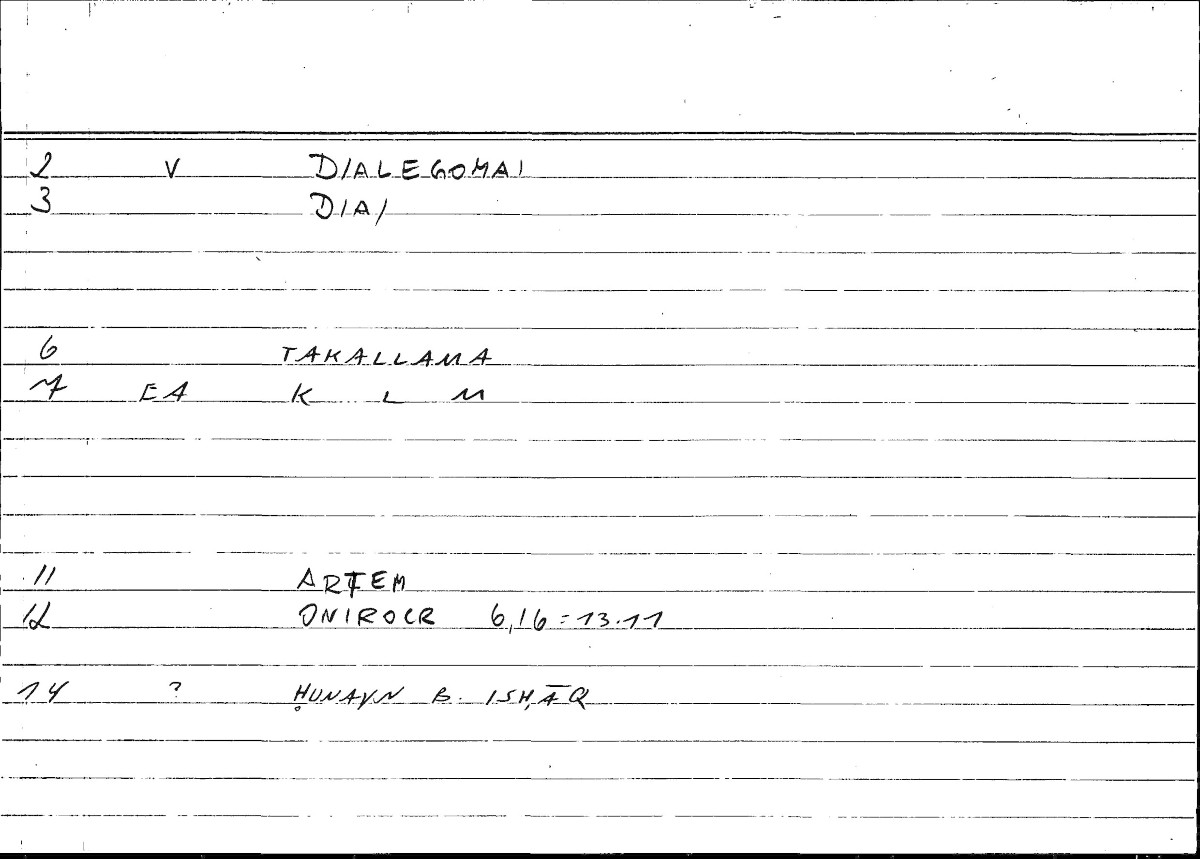 2 V DIALEGOMAI
3 DIA/
6 TAKALLAMA
7 EA K L M
11 ARTEM
12 ONIROCR 6,16=13.11
14 ? ḤUNAYN B. ISḤĀQ